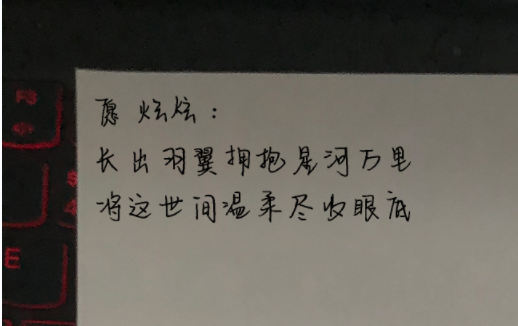 愿炫炫：
长出羽翼拥抱星河万里
将这世间温柔尽收眼底
E